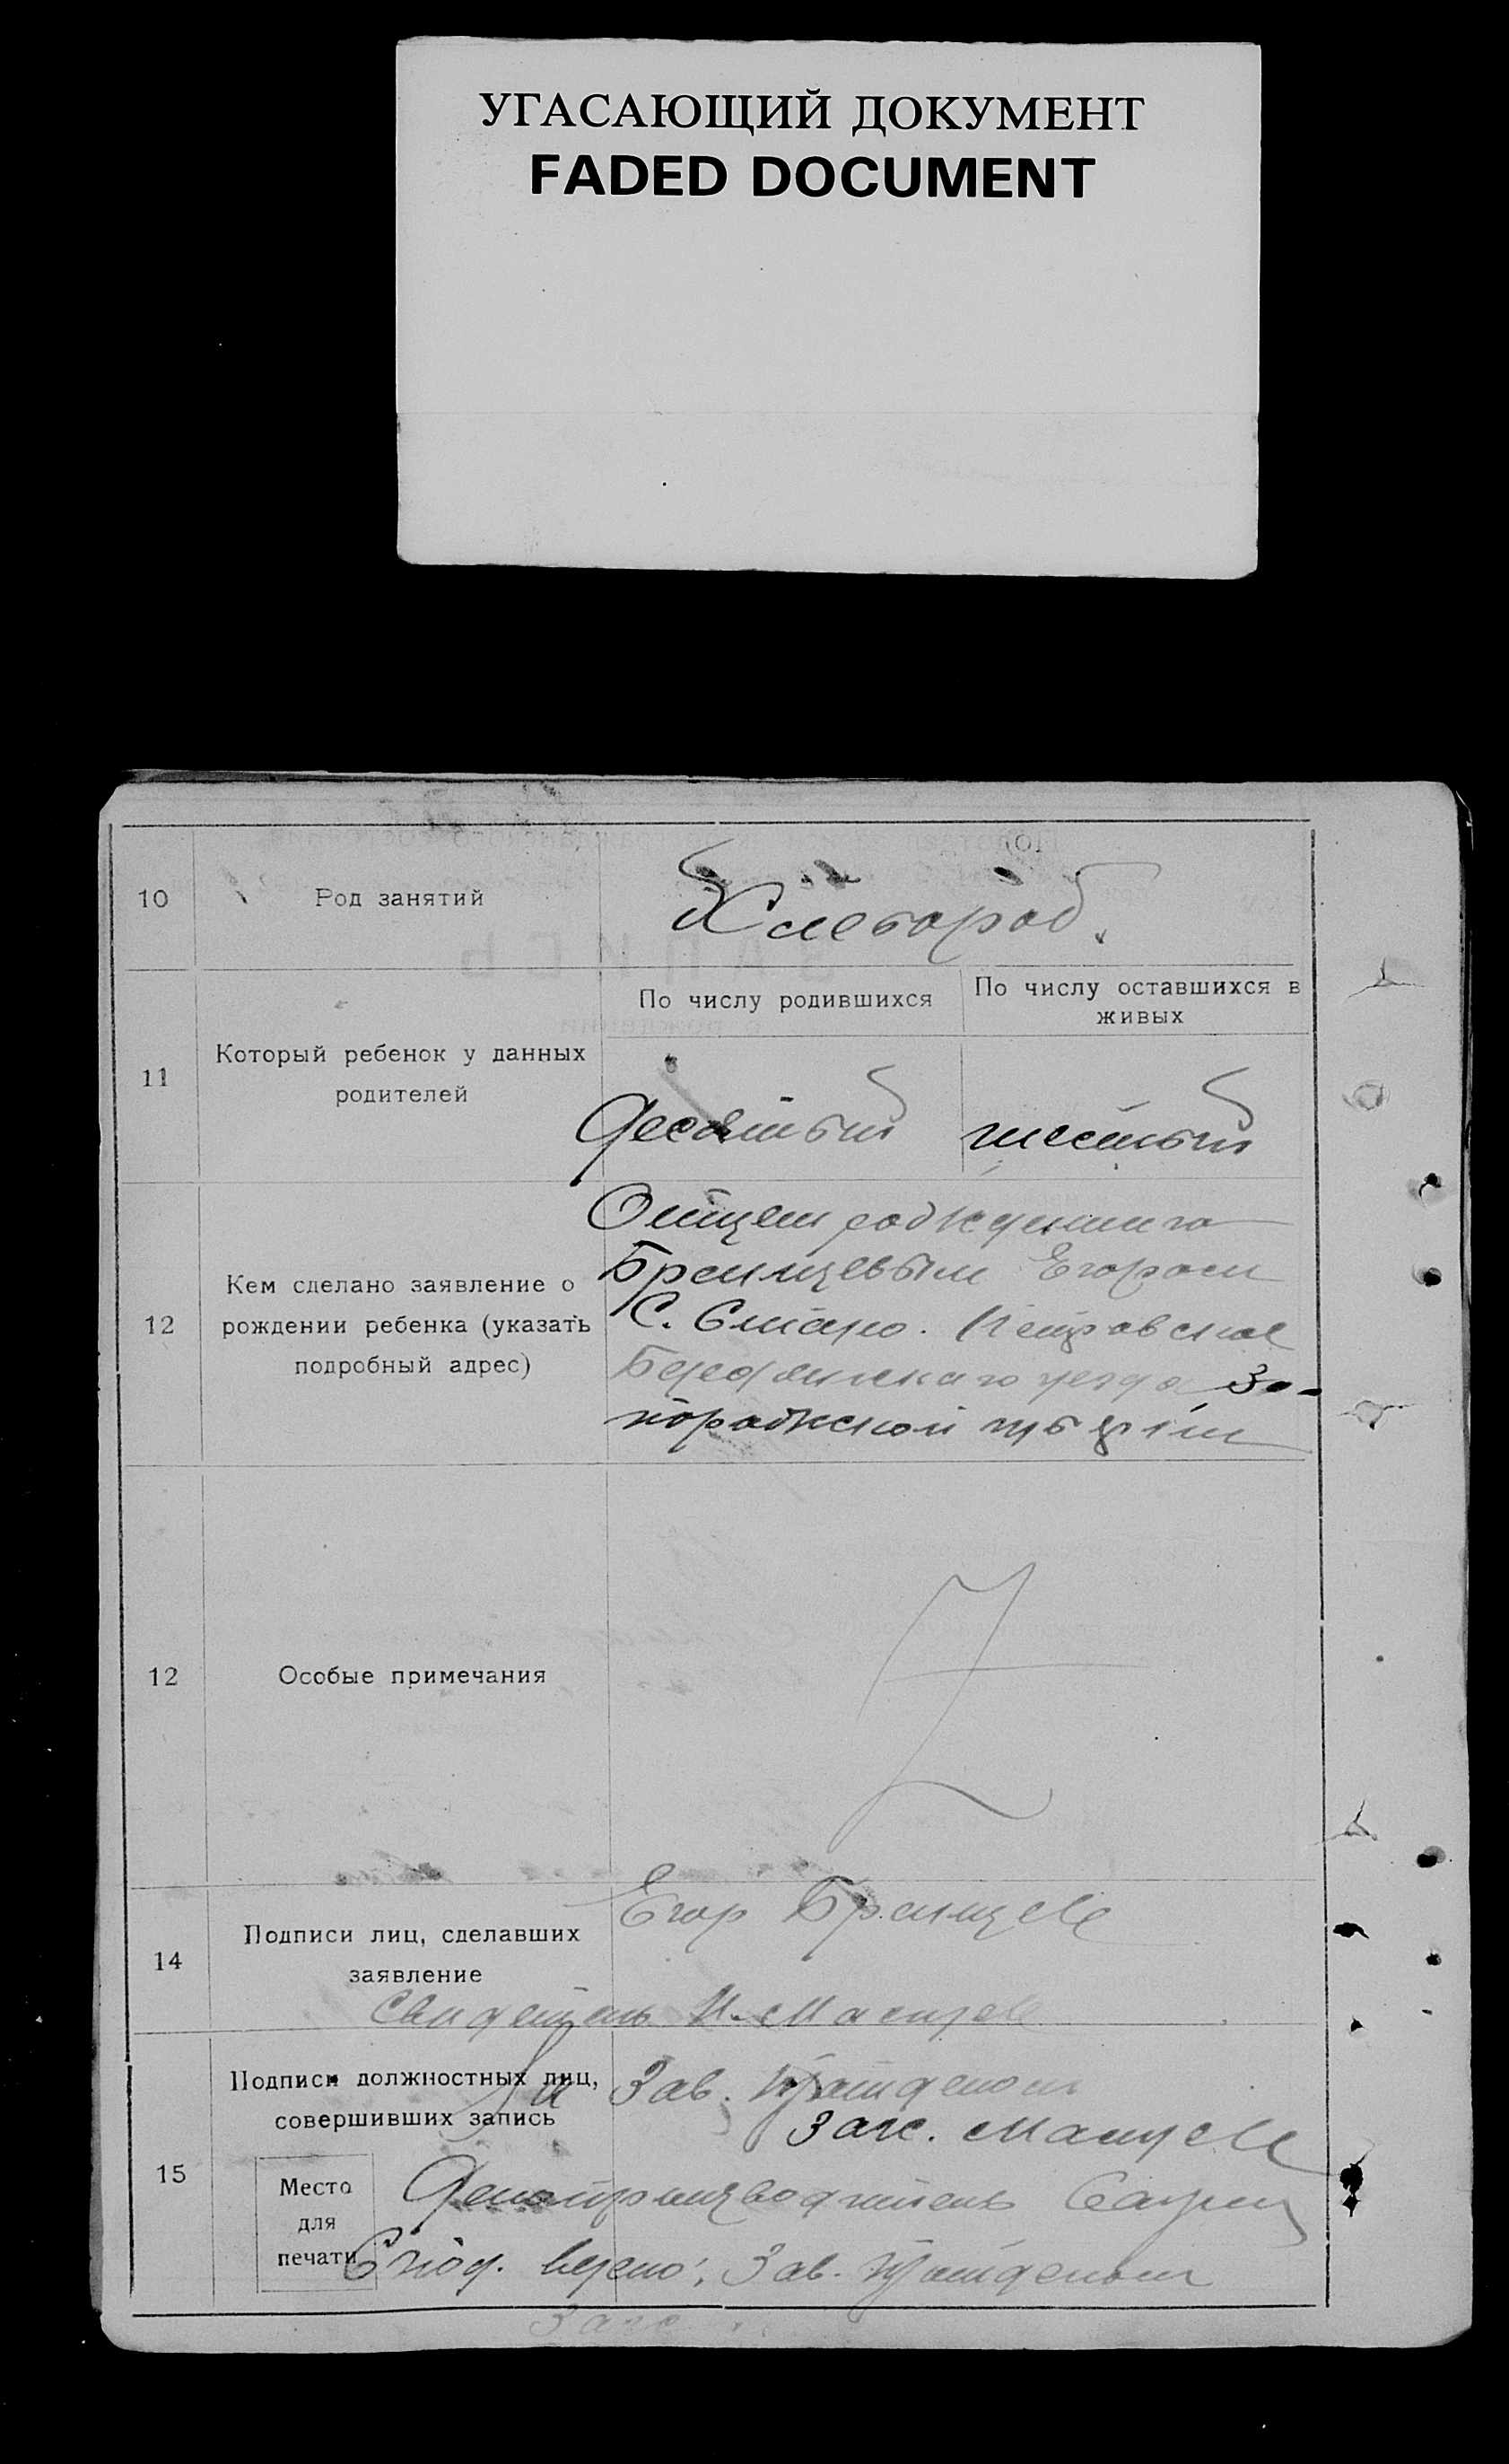 УГАСАЮЩИЙ ДОКУМЕНТ
FADED DOCUMENT
10
Род занятий
Хлебороб.
11
Который ребенок у данных
родителей
По числу родившихся
По числу оставшихся в
живых
Десятый
шестый
12
Кем сделано заявление о
рождении ребенка (указать
подробный адрес)
Отцем
Егором
С. Старо. Петровское
Бердянскаго уезда За-
порожской
12
Особые примечания
14
Подписи лиц, сделавших
заявление
Егор
Свидетель
15
Подписи должностных лиц,
совершивших запись
Зав.
Загс.
Место
для
печати
Делопроизводитель
С под. верно: Зав.
Загс